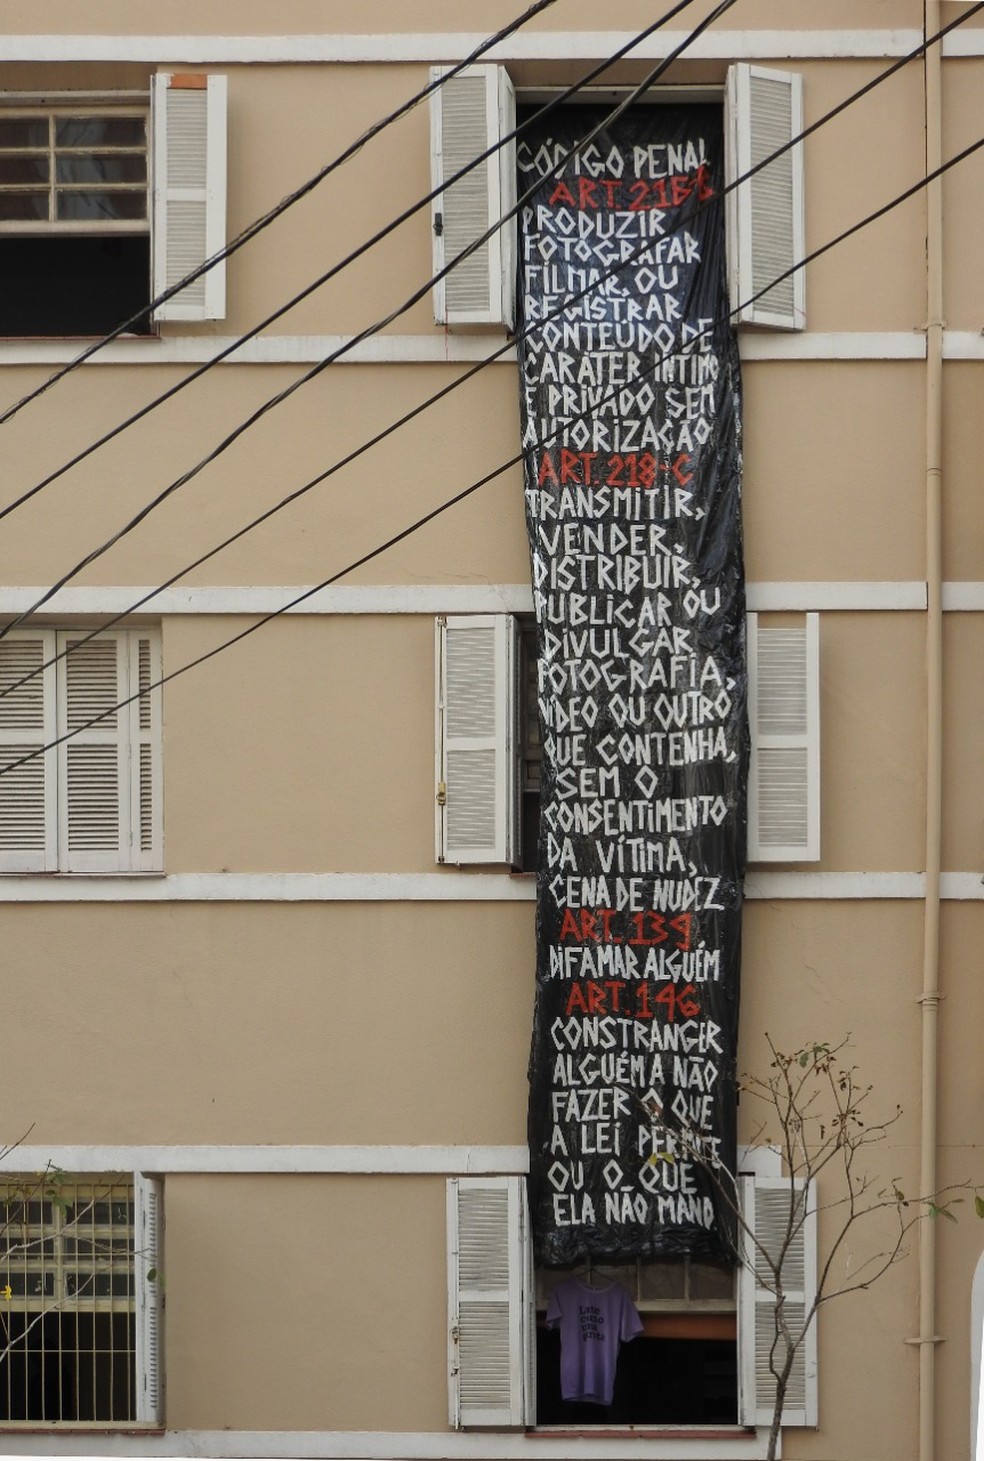 CÓDIGO PENAL
ART. 216-B
PRODUZIR
FOTOGRAFAR
FILMAR, OU
REGISTRAR
CONTEÚDO DE
CARATER INTIMO
E PRIVADO SEM
AUTORIZAÇÃO
ART. 218-C
TRANSMITIR,
VENDER,
DISTRIBUIR,
PUBLICAR OU
DIVULGAR
FOTOGRAFIA,
VÍDEO OU OUTRO
QUE CONTENHA,
SEM O
CONSENTIMENTO
DA VÍTIMA,
CENA DE NUDEZ
ART. 139
DIFAMAR ALGUÉM
ART. 146
CONSTRANGER
ALGUÉM A NÃO
FAZER O QUE
A LEI PERMITE
OU O QUE
ELA NÃO MAND
como
una